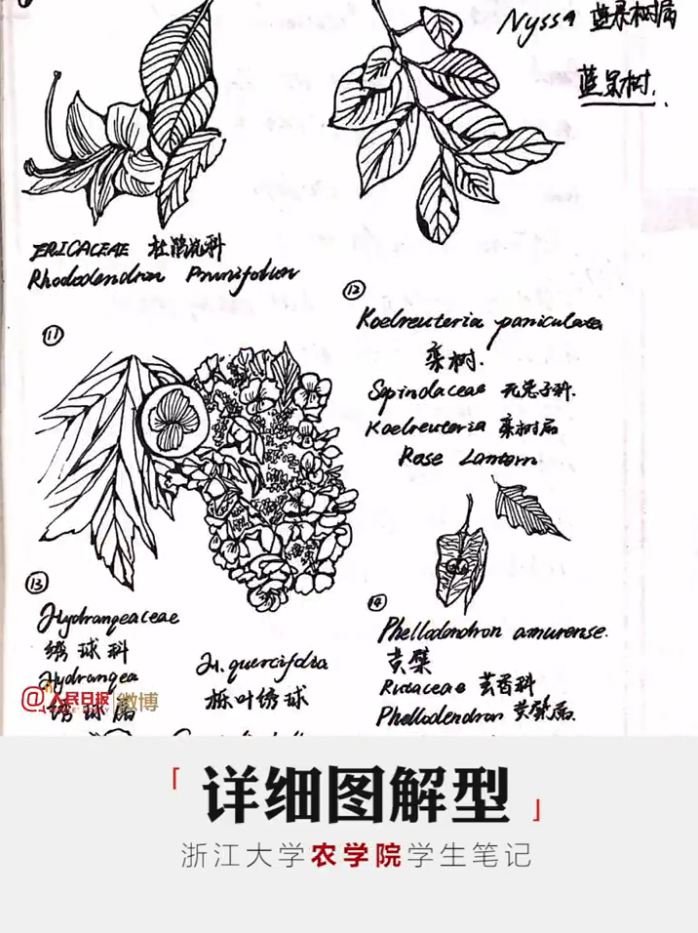 Nyssa 蓝果树属
蓝果树.
ERICACEAE 杜鹃花科
Rhododendron Prunifolium
⑪
⑫
Koelreuteria paniculata
栾树.
Sapindaceae 无患子科.
Koelreuteria 栾树属
Rose Lantern
⑬
Hydrangeaceae
绣球科
Hydrangea
绣球属
H. quercifolia
栎叶绣球
⑭
Phellodendron amurense.
黄檗
Rutaceae 芸香科
Phellodendron 黄檗属.
@人民日报 微博
「详细图解型」
浙江大学农学院学生笔记